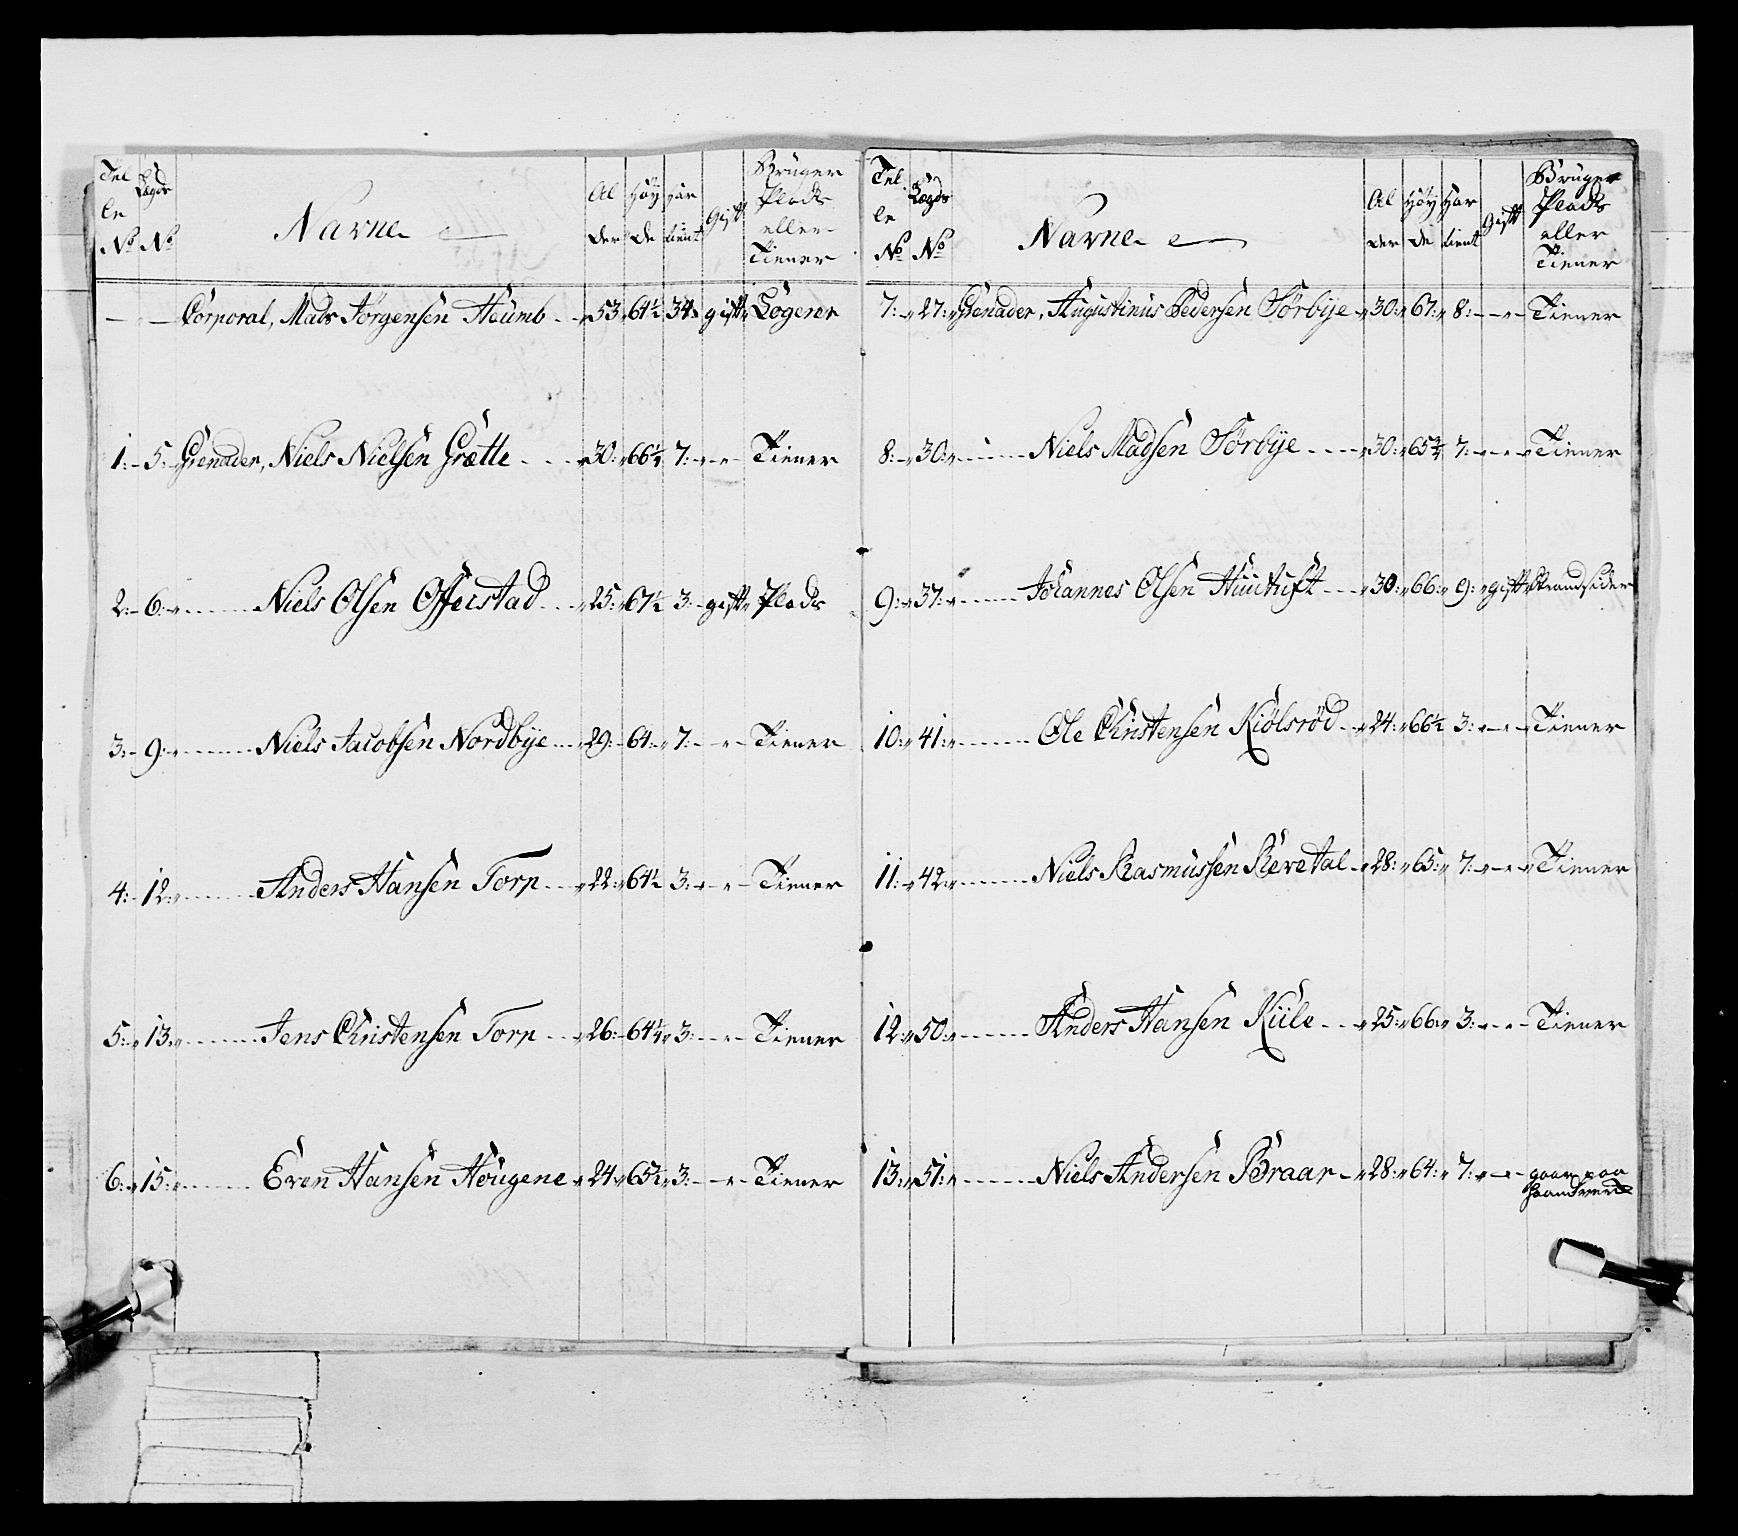 Tel
le
No
Lægds
No
Navne
Al
der
Høy
de
Har
tient
Gift
Bruger
Plads
eller
Tiener
— Corporal, Mads Jörgensen Heumb 53 64½ 34 gift Logerer
1: 5: Grenader, Niels Nielsen Grætte 30: 66¼ 7: Tiener
2: 6: Niels Olsen Offerstad 25: 67½ 3: gift Plads
3: 9: Niels Jacobsen Nordbye 29: 64: 7: Tiener
4: 12: Anders Hansen Torp 22: 64½ 3: Tiener
5: 13: Jens Christensen Torp 26: 64¼ 3: Tiener
6: 15: Even Hansen Hougene 24: 65½ 3: Tiener
Tel
le
No
Lægds
No
Navne
Al
der
Høy
de
Har
tient
Gift
Bruger
Plads
eller
Tiener
7: 27: Grenader, Augustinus Pedersen Sörbye 30: 67: 8: Tiener
8: 30: Niels Madsen Sörbye 30: 65¾ 7: Tiener
9: 37: Johannes Olsen 30: 66: 9: gift Strandsider
10: 41: Ole Christensen Kiölsröd 24: 66½ 3: Tiener
11: 42: Niels Rasmussen Revetal 28: 65: 7: Tiener
12: 50: Anders Hansen Kiile 25: 66: 3: Tiener
13: 51: Niels Andersen Braar 28: 64: 7: gaar paa
Haandverk